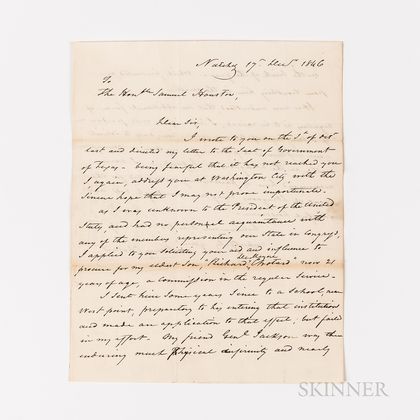 Natchez 17th Decr. 1846
To
The Honble Samuel Houston,
Dear Sir,
I wrote to you on the 3d. of Octr.
last and directed my letter to the Seat of Government
of Texas - being fearful that it has not reached you
I again, address you at Washington City with the
Sincere hope that I may not prove importunate.
As I was unknown to the President of the United
States, and had no personal acquaintance with
any of the members representing our State in Congress,
I applied to you soliciting your aid and influence to
procure for my eldest Son, "Richard Chotard" now 21
years of age, a Commission in the regular Service.
I Sent him Some years Since to a School, near
West point, preparatory to his entering that institution
and made an application to that effect, but failed
in my effort. My friend Genl. Jackson was then
enduring much Physical and nearly
SKINNER